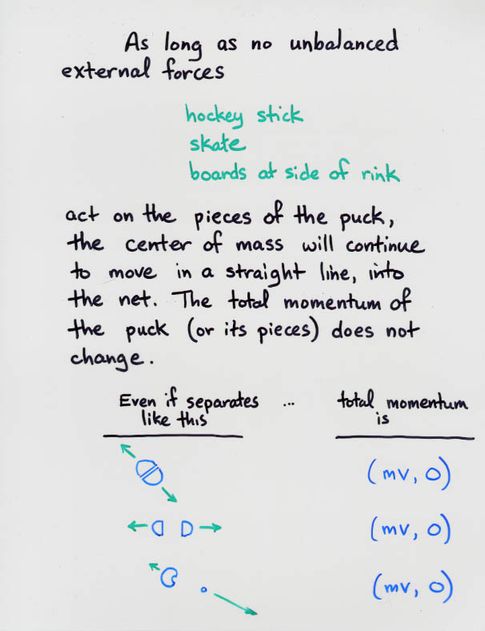 As long as no unbalanced
external forces
hockey stick
skate
boards at side of rink
act on the pieces of the puck,
the center of mass will continue
to move in a straight line, into
the net. The total momentum of
the puck (or its pieces) does not
change.
Even if separates ... total momentum
like this is
(mv, 0)
(mv, 0)
(mv, 0)